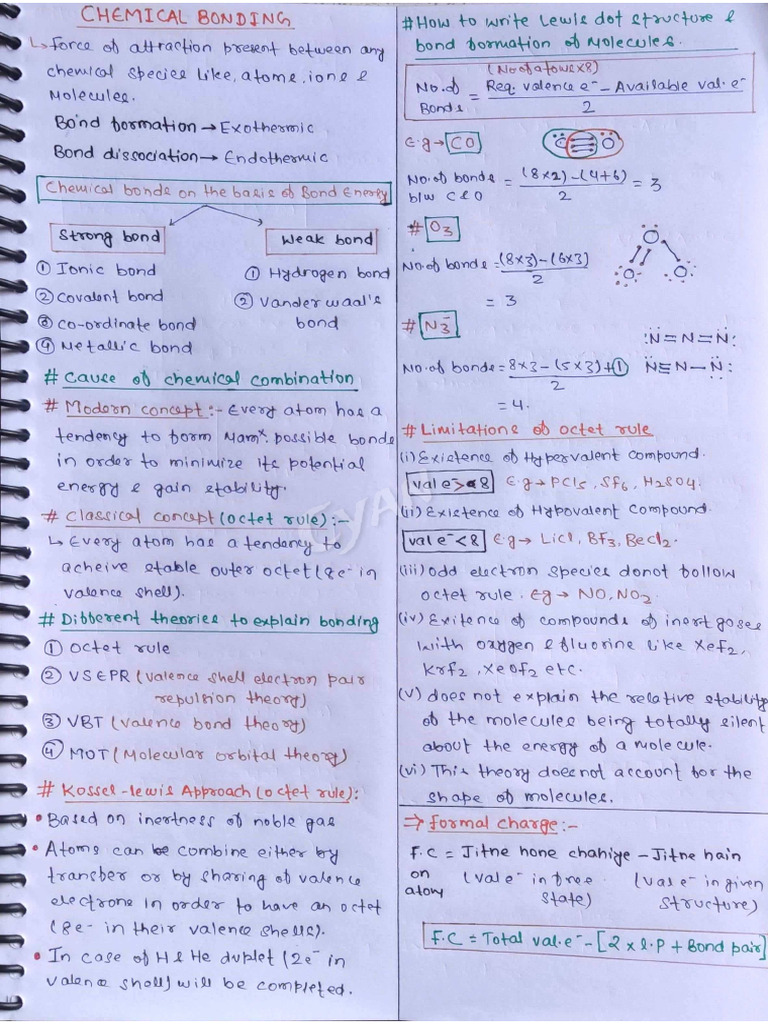 CHEMICAL BONDING
↳ Force of attraction present between any
chemical species like, atoms, ions &
Molecules.
Bond formation → Exothermic
Bond dissociation → Endothermic
Chemical bonds on the basis of Bond Energy
Strong bond
Weak bond
① Ionic bond
② Covalent bond
③ Co-ordinate bond
④ Metallic bond
① Hydrogen bond
② Vander waal's
bond
# Cause of chemical combination
# Modern concept :- Every atom has a
tendency to form Maxᵐ possible bonds
in order to minimize its potential
energy & gain stability.
# Classical concept (octet rule) :-
↳ Every atom has a tendency to
acheive stable outer octet (8e⁻ in
valence shell).
# Different theories to explain bonding
① Octet rule
② VSEPR (Valence shell electron pair
repulsion theory)
③ VBT (Valence bond theory)
④ MOT (Molecular orbital theory)
# Kossel-lewis Approach (octet rule):
• Based on inertness of noble gas
• Atoms can be combine either by
transfer or by sharing of valence
electrons in order to have an octet
(8e- in their valence shells).
• In case of H & He duplet (2e⁻ in
valence shell) will be completed.
# How to write Lewis dot structure &
bond formation of Molecules.
(No of atoms x 8)
No. of Bonds = Req. valence e⁻ - Available val. e⁻ / 2
E.g → CO
C O
No. of bonds b/w C & O = (8x2) - (4+6) / 2 = 3
# O₃
O
O O
No. of bonds = (8x3) - (6x3) / 2
= 3
# N₃⁻
:N=N=N:
No. of bonds = 8x3 - (5x3)+① / 2
N≡N-N:
= 4.
# Limitations of octet rule
(i) Existence of Hypervalent compound.
val e⁻ > 8 E.g → PCl5, SF6, H2SO4.
(ii) Existence of Hypovalent Compound.
val e⁻ < 8 E.g → LiCl, BF3, BeCl2.
(iii) Odd electron species donot follow
octet rule. Eg → NO, NO2.
(iv) Exitence of compounds of inert gases
with oxygen & fluorine like XeF2,
KrF2, XeOF2 etc.
(v) does not explain the relative stability
of the molecules being totally silent
about the energy of a molecule.
(vi) This theory does not account for the
shape of molecules.
⇒ Formal charge :-
F.C = Jitne hone chahiye - Jitne hain
on atom
(Val e⁻ in free state)
(Vas e⁻ in given structure)
F.C = Total val. e⁻ - [2 x l.P + Bond pair]